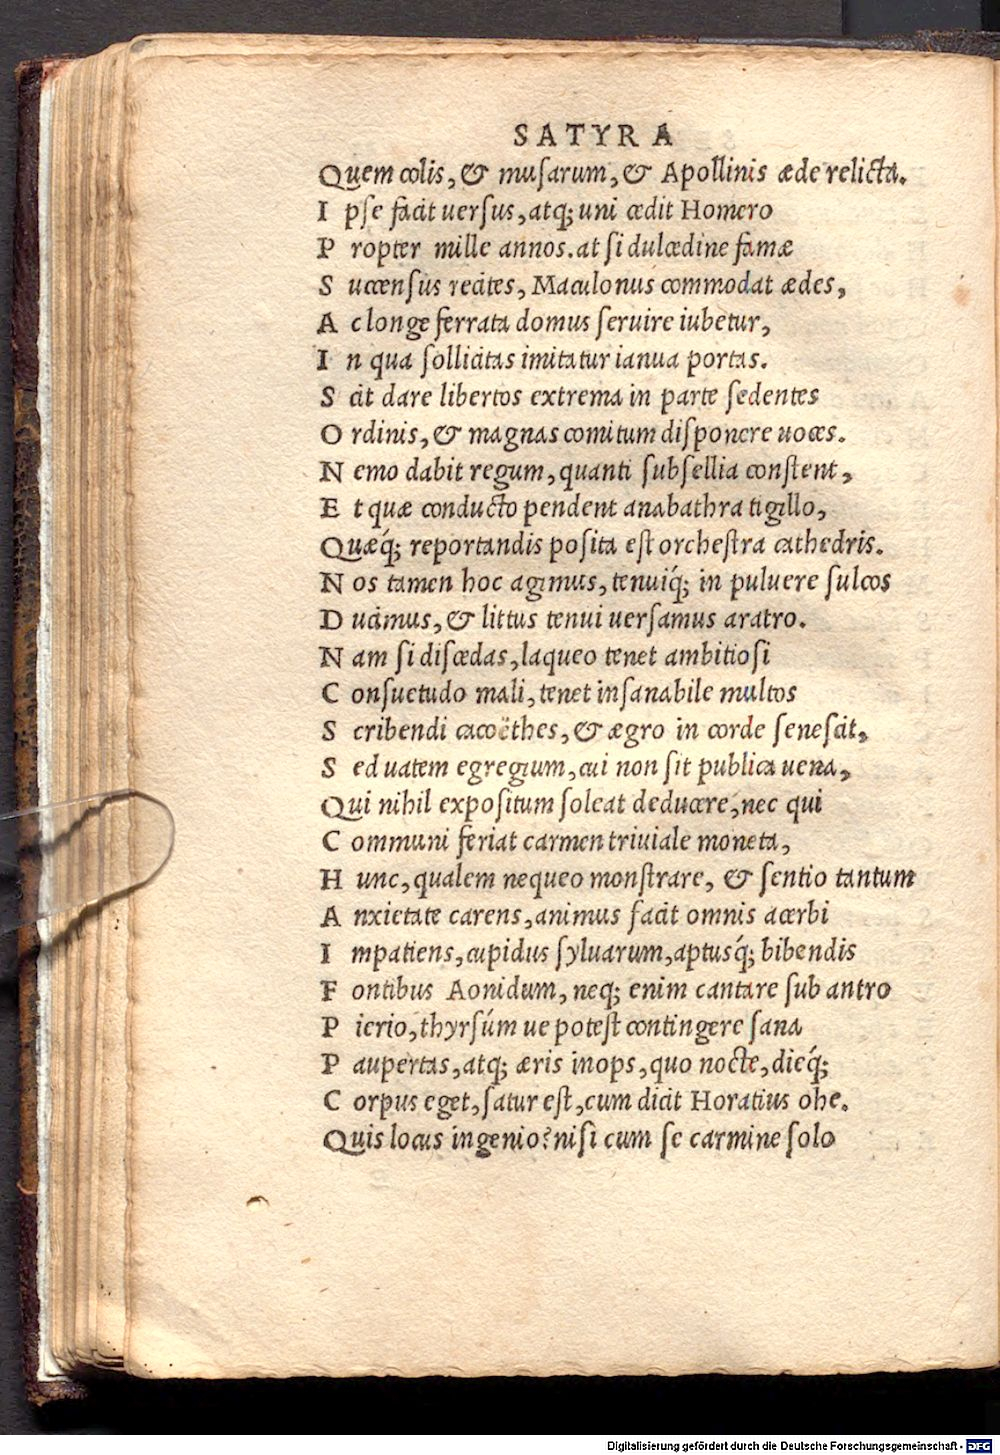 SATYRA
Quem colis, & musarum, & Apollinis æde relicta.
I pse facit uersus, atq; uni cedit Homero
P ropter mille annos. at si dulcedine famæ
S uccensus recites, Maculonus commodat ædes,
A c longe ferrata domus seruire iubetur,
I n qua sollicitas imitatur ianua portas.
S cit dare libertos extrema in parte sedentes
O rdinis, & magnas comitum disponere uoces.
N emo dabit regum, quanti subsellia constent,
E t quæ conducto pendent anabathra tigillo,
Quæq́; reportandis posita est orchestra cathedris.
N os tamen hoc agimus, tenuiq́; in puluere sulcos
D ucimus, & littus tenui uersamus aratro.
N am si discedas, laqueo tenet ambitiosi
C onsuetudo mali, tenet insanabile multos
S cribendi cacoëthes, & ægro in corde senescit,
S ed uatem egregium, cui non sit publica uena,
Qui nihil expositum soleat deducere, nec qui
C ommuni feriat carmen triuiale moneta,
H unc, qualem nequeo monstrare, & sentio tantum
A nxietate carens, animus facit omnis acerbi
I mpatiens, cupidus syluarum, aptusq́; bibendis
F ontibus Aonidum, neq; enim cantare sub antro
P ierio, thyrsúm ue potest contingere sana
P aupertas, atq; æris inops, quo nocte, dieq́;
C orpus eget, satur est, cum dicit Horatius ohe.
Quis locus ingenio? nisi cum se carmine solo
Digitalisierung gefördert durch die Deutsche Forschungsgemeinschaft - DFG